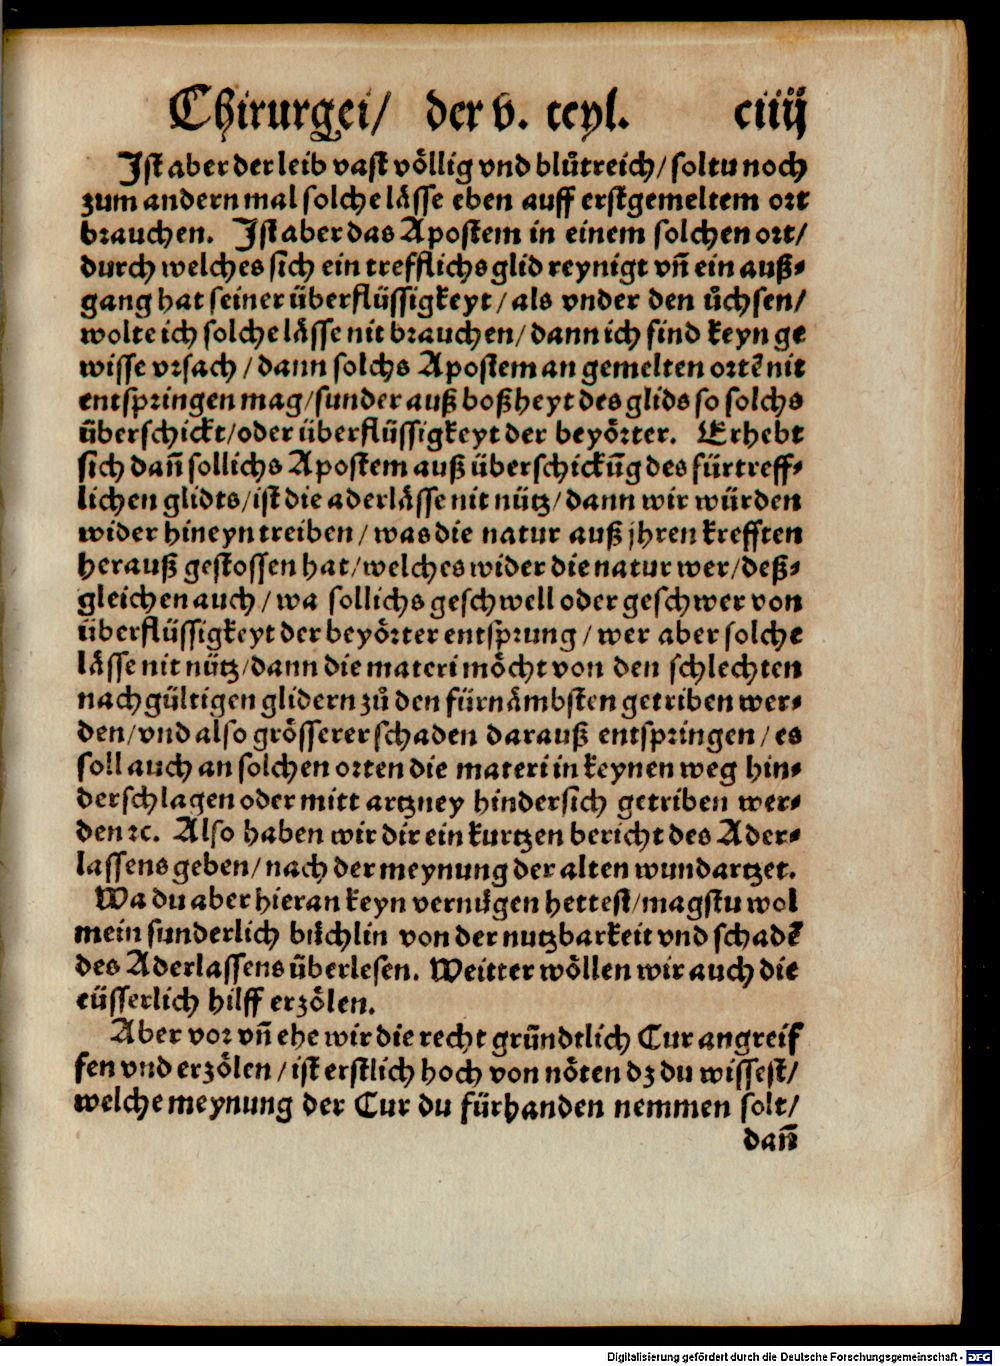 Chirurgei/ der v. teyl. ciiij
Ist aber der leib vast völlig vnd blůtreich/ soltu noch
zum andern mal solche lässe eben auff erstgemeltem ort
brauchen. Ist aber das Apostem in einem solchen ort/
durch welches sich ein trefflichs glid reynigt vñ ein auß-
gang hat seiner überflüssigkeyt/ als vnder den ůchsen/
wolte ich solche lässe nit brauchen/ dann ich find keyn ge
wisse vrsach/ dann solchs Apostem an gemelten ortẽ nit
entspringen mag/ sunder auß boßheyt des glids so solchs
überschickt/ oder überflüssigkeyt der beyörter. Erhebt
sich dañ sollichs Apostem auß überschickũg des fürtreff-
lichen glidts/ ist die aderlässe nit nütz/ dann wir würden
wider hineyn treiben/ was die natur auß jhren krefften
herauß gestossen hat/ welches wider die natur wer/ deß-
gleichen auch/ wa sollichs geschwell oder geschwer von
überflüssigkeyt der beyörter entsprung/ wer aber solche
lässe nit nütz/ dann die materi möcht von den schlechten
nachgültigen glidern zů den fürnämbsten getriben wer-
den/ vnd also grösserer schaden darauß entspringen/ es
soll auch an solchen orten die materi in keynen weg hin-
derschlagen oder mitt artzney hindersich getriben wer-
den ꝛc. Also haben wir dir ein kurtzen bericht des Ader-
lassens geben/ nach der meynung der alten wundartzet.
Wa du aber hieran keyn vernůgen hettest/ magstu wol
mein sunderlich bůchlin von der nutzbarkeit vnd schadẽ
des Aderlassens überlesen. Weitter wöllen wir auch die
eüsserlich hilff erzölen.
Aber vor vñ ehe wir die recht gründtlich Cur angreif
fen vnd erzölen/ ist erstlich hoch von nöten dz du wissest/
welche meynung der Cur du fürhanden nemmen solt/
dañ
Digitalisierung gefördert durch die Deutsche Forschungsgemeinschaft - DFG